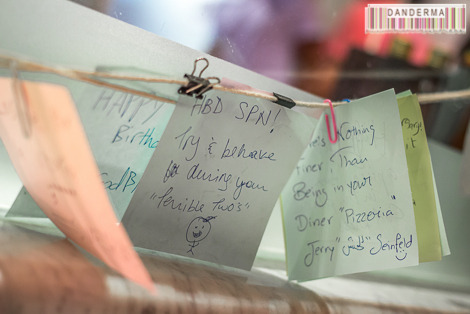 DANDERMA
Happy
Birth
God B
HBD SPN!
Try & behave
during your
"terrible Two's"
Nothing
Finer, Than
Being in your
Diner "Pizzeria"
Jerry Seinfeld
it